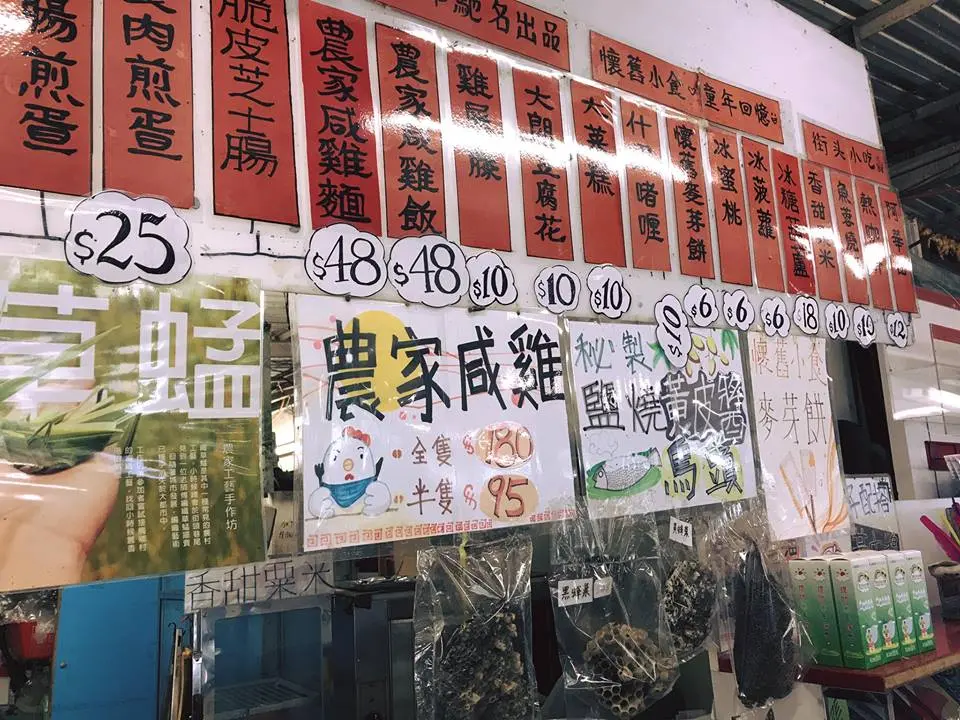 馳名出品
懷舊小食 童年回憶
街头小吃
腸煎蛋
肉煎蛋
脆皮芝士腸
農家咸雞麵
農家咸雞飯
雞屎藤
大朗豆腐花
大菜糕
什 啫喱
懷舊麥芽餅
冰蜜桃
冰菠蘿
冰糖葫蘆
香甜 米
魚蓉燒
熱咖
阿華田
$25
$48
$48
$10
$10
$10
10
$6
$6
$6
$18
$10
$10
$12
草蜢
農家工藝手作坊
農家咸雞
全隻 $180
半隻 $95
秘製
鹽燒黃皮醬
馬頭
懷舊小食
麥芽餅
香甜粟米
黑蜂巢
黑蜂巢